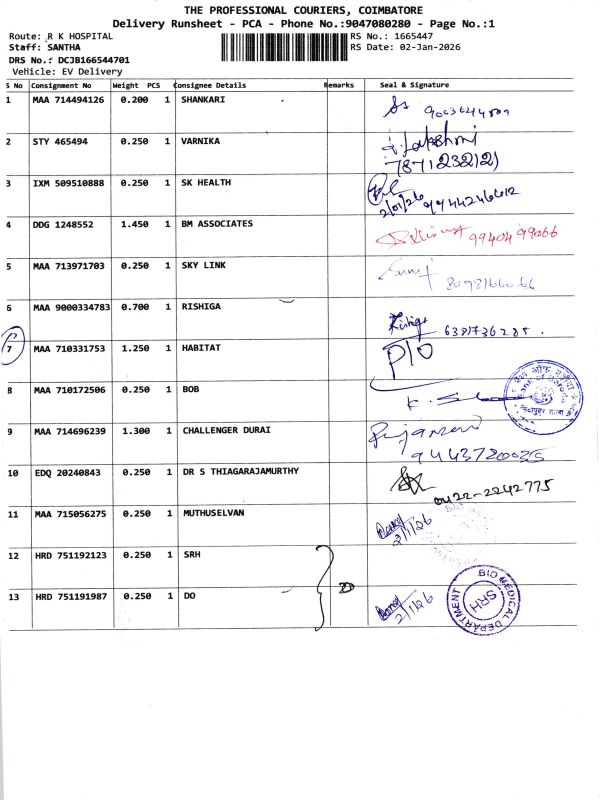 THE PROFESSIONAL COURIERS, COIMBATORE
Delivery Runsheet - PCA - Phone No.:9047080280 - Page No.:1
Route: R K HOSPITAL
RS No.: 1665447
Staff: SANTHA
RS Date: 02-Jan-2026
DRS No.: DCJB166544701
Vehicle: EV Delivery
S No Consignment No Weight PCS Consignee Details Remarks Seal & Signature
1 MAA 714494126 0.200 1 SHANKARI
2 STY 465494 0.250 1 VARNIKA
Lakshmi
7871232121
3 IXM 509510888 0.250 1 SK HEALTH
2/01/26 9944246612
4 DDG 1248552 1.450 1 BM ASSOCIATES
9940499066
5 MAA 713971703 0.250 1 SKY LINK
6 MAA 9000334783 0.700 1 RISHIGA
6381736285.
7 MAA 710331753 1.250 1 HABITAT P/O
8 MAA 710172506 0.250 1 BOB
Bank of Baroda
9 MAA 714696239 1.300 1 CHALLENGER DURAI
9443720025
10 EDQ 20240843 0.250 1 DR S THIAGARAJAMURTHY
0422-2242775
11 MAA 715056275 0.250 1 MUTHUSELVAN
2/1/26
12 HRD 751192123 0.250 1 SRH
13 HRD 751191987 0.250 1 DO
2/1/26
BIO MEDICAL DEPARTMENT
SRH